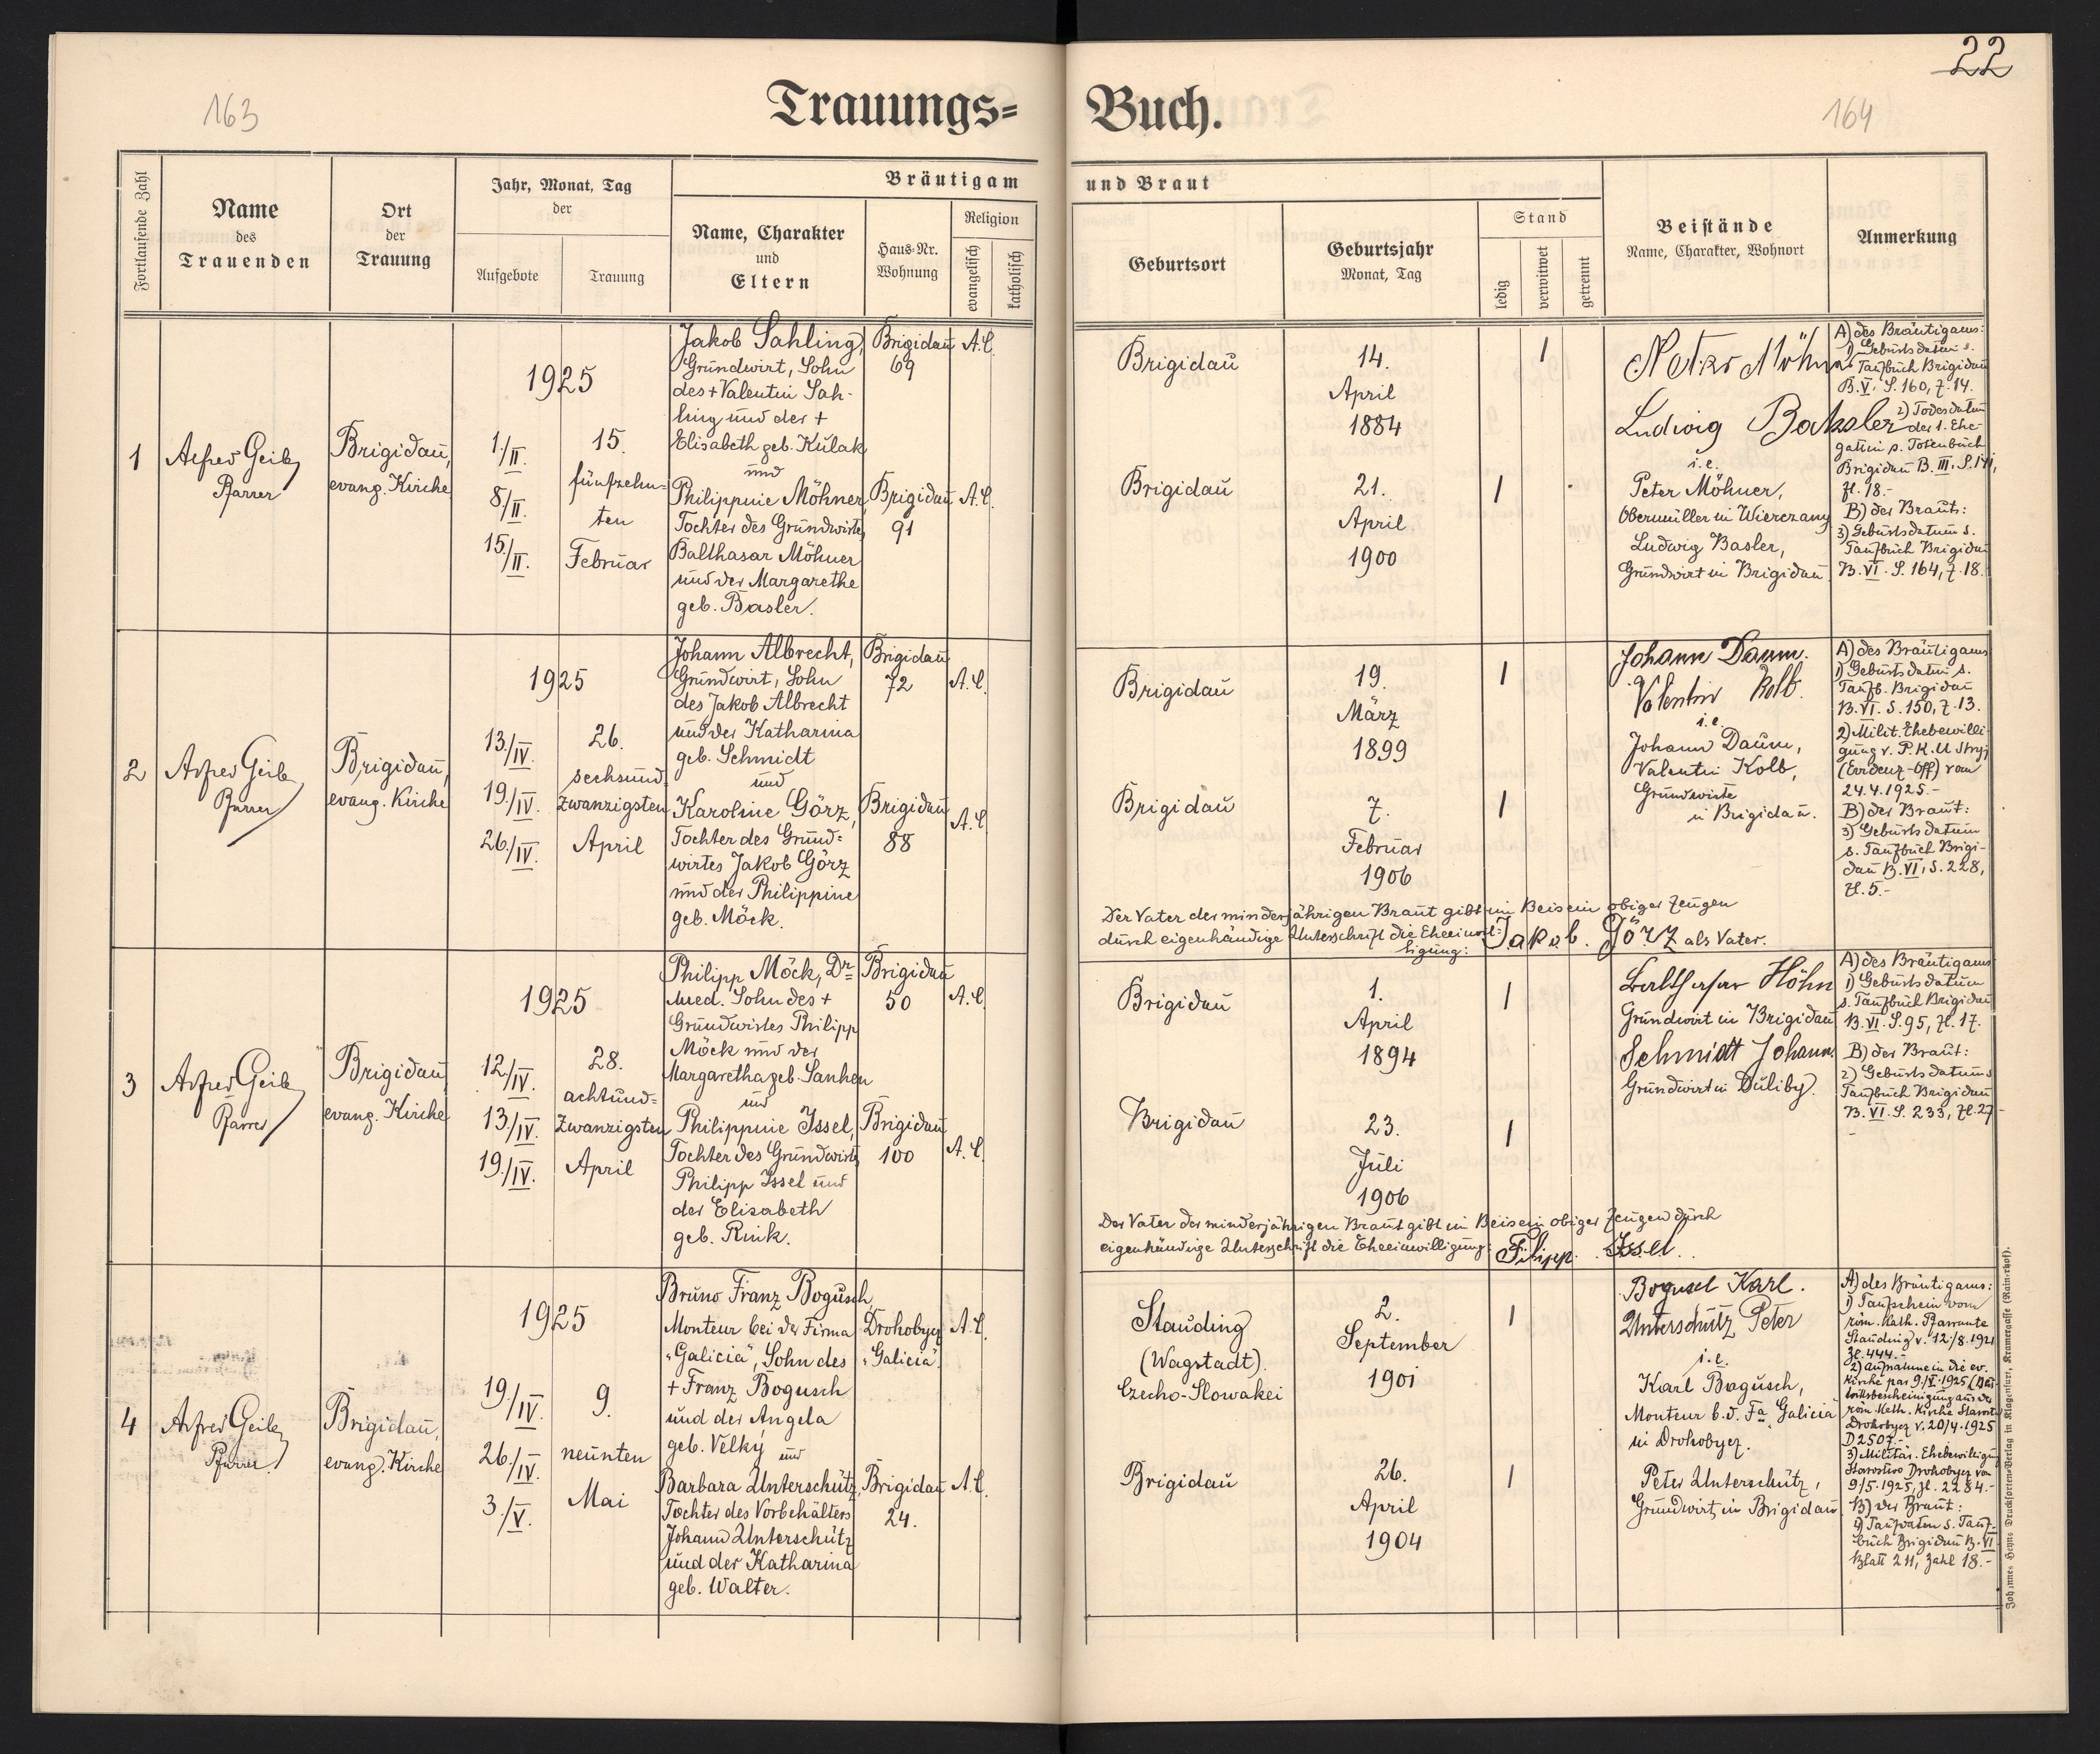 22
163
164
Trauungs=
Buch.
Fortlaufende Zahl
Name
des
Trauenden
Ort
der
Trauung
Jahr, Monat, Tag
der
Aufgebote
Trauung
Bräutigam
Name, Charakter
und
Eltern
Haus-Nr.
Wohnung
Religion
evangelisch
katholisch
und Braut
Geburtsort
Geburtsjahr
Monat, Tag
Stand
ledig
verwitwet
getrennt
Beistände
Name, Charakter, Wohnort
Anmerkung
1
Alfred Geib
Pfarrer
Brigidau,
evang. Kirche
1925
1./II.
8./II.
15./II.
15.
fünfzehn=
ten
Februar
Jakob Sahling,
Grundwirt, Sohn
des + Valentin Sah-
ling und der +
Elisabeth geb. Kulak
und
Philippine Möhner,
Tochter des Grundwirtes
Balthasar Möhner
und der Margarethe
geb. Basler.
Brigidau
69
A.C.
Brigidau
91
A.C.
Brigidau
14.
April
1884
1
Brigidau
21.
April
1900
1
Ludwig
i.e.
Peter Möhner,
Obermüller in Wierczany
Ludwig Basler,
Grundwirt in Brigidau
A) des Bräutigams:
1) Geburtsdatum s.
Taufbuch Brigidau
B. V. S. 160, Z. 14.
2) Todesdatum
der 1. Ehe-
gattin s. Totenbuch
Brigidau B. III. S. 141,
Zl. 18.-
B) der Braut:
3) Geburtsdatum s.
Taufbuch Brigidau
B. VI. S. 164, Z. 18.
2
Alfred Geib
Pfarrer
Brigidau,
evang. Kirche
1925
13./IV.
19./IV.
26./IV.
26.
sechsund
zwanzigsten
April
Johann Albrecht,
Grundwirt, Sohn
des Jakob Albrecht
und der Katharina
geb. Schmidt
und
Karoline Görz,
Tochter des Grund=
wirtes Jakob Görz
und der Philippine
geb. Möck.
Brigidau
72
A.C.
Brigidau
88
A.C.
Brigidau
19.
März
1899
1
Brigidau
7.
Februar
1906
1
Johann Daum.
Valentin Kolb.
i.e.
Johann Daum,
Valentin Kolb,
Grundwirte
in Brigidau.
A) des Bräutigams
1) Geburtsdatum s.
Taufb. Brigidau
B. VI. S. 150, Z. 13.
2) Milit. Ehebewilli-
gung v. P.K.U Stryj
(Evidenz-Off) vom
24.4.1925.-
B) der Braut:
3) Geburtsdatum
s. Taufbuch Brigi-
dau B. VI, S. 228,
Zl. 5.-
Der Vater der minderjährigen Braut gibt im Beisein obiger Zeugen
durch eigenhändige Unterschrift die Eheeinwil=
ligung: Jakob. Görz als Vater.
3
Alfred Geib
Pfarrer
Brigidau
evang. Kirche
1925
12./IV.
13./IV.
19./IV.
28.
achtund=
zwanzigsten
April
Philipp Möck, Dr
med. Sohn des +
Grundwirtes Philipp
Möck und der
Margaretha geb. Sanhen
und
Philippine Issel,
Tochter des Grundwirts
Philipp Issel und
der Elisabeth
geb. Rink.
Brigidau
50
A.C.
Brigidau
100
A.C.
Brigidau
1.
April
1894
1
Brigidau
23.
Juli
1906
1
Balthasar Höhn
Grundwirt in Brigidau
Schmidt Johann.
Grundwirt in Duliby.
A) des Bräutigams
1) Geburtsdatum
s. Taufbuch Brigidau
B. VI. S. 95, Zl. 17.
B) der Braut:
2) Geburtsdatum s
Taufbuch Brigidau
B. VI. S. 233, Zl. 27
Der Vater der minderjährigen Braut gibt im Beisein obiger Zeugen durch
eigenhändige Unterschrift die Eheeinwilligung: Filipp. Issel.
4
Alfred Geib
Pfarrer
Brigidau,
evang. Kirche
1925
19./IV.
26./IV.
3./V.
9.
neunten
Mai
Bruno Franz Bogusch,
Monteur bei der Firma
"Galicia", Sohn des
+ Franz Bogusch
und der Angela
geb. Velký
und
Barbara Unterschütz,
Tochter des Vorbehälters
Johann Unterschütz
und der Katharina
geb. Walter.
Drohobycz
"Galicia".
A.C.
Brigidau
24.
A.C.
Stauding
(Wagstadt).
Czecho-Slowakei
2.
September
1901
1
Brigidau
26.
April
1904
1
Bogusch Karl.
Unterschütz Peter
i.e.
Karl Bogusch,
Monteur b.d. Fa Galicia
in Drohobycz.
Peter Unterschütz,
Grundwirt in Brigidau
A) des Bräutigams:
1) Taufschein vom
röm. kath. Pfarramte
Stauding v. 12./8.1921
Zl. 444.-
2) Aufnahme in die ev.
Kirche
röm. kath. Kirche Starost.
Drohobycz v. 20/4.1925
D 2507.-
3) Militär. Ehebewilligung
Starostwo Drohobycz vom
9/5.1925, Zl. 2284.-
B) der Braut:
4) Taufdaten s. Tauf-
buch Brigidau B. VI
Blatt 211, Zahl 18.-
Johannes Heyns Drucksorten-Verlag in Klagenfurt, Kramergasse (Rainerhof).